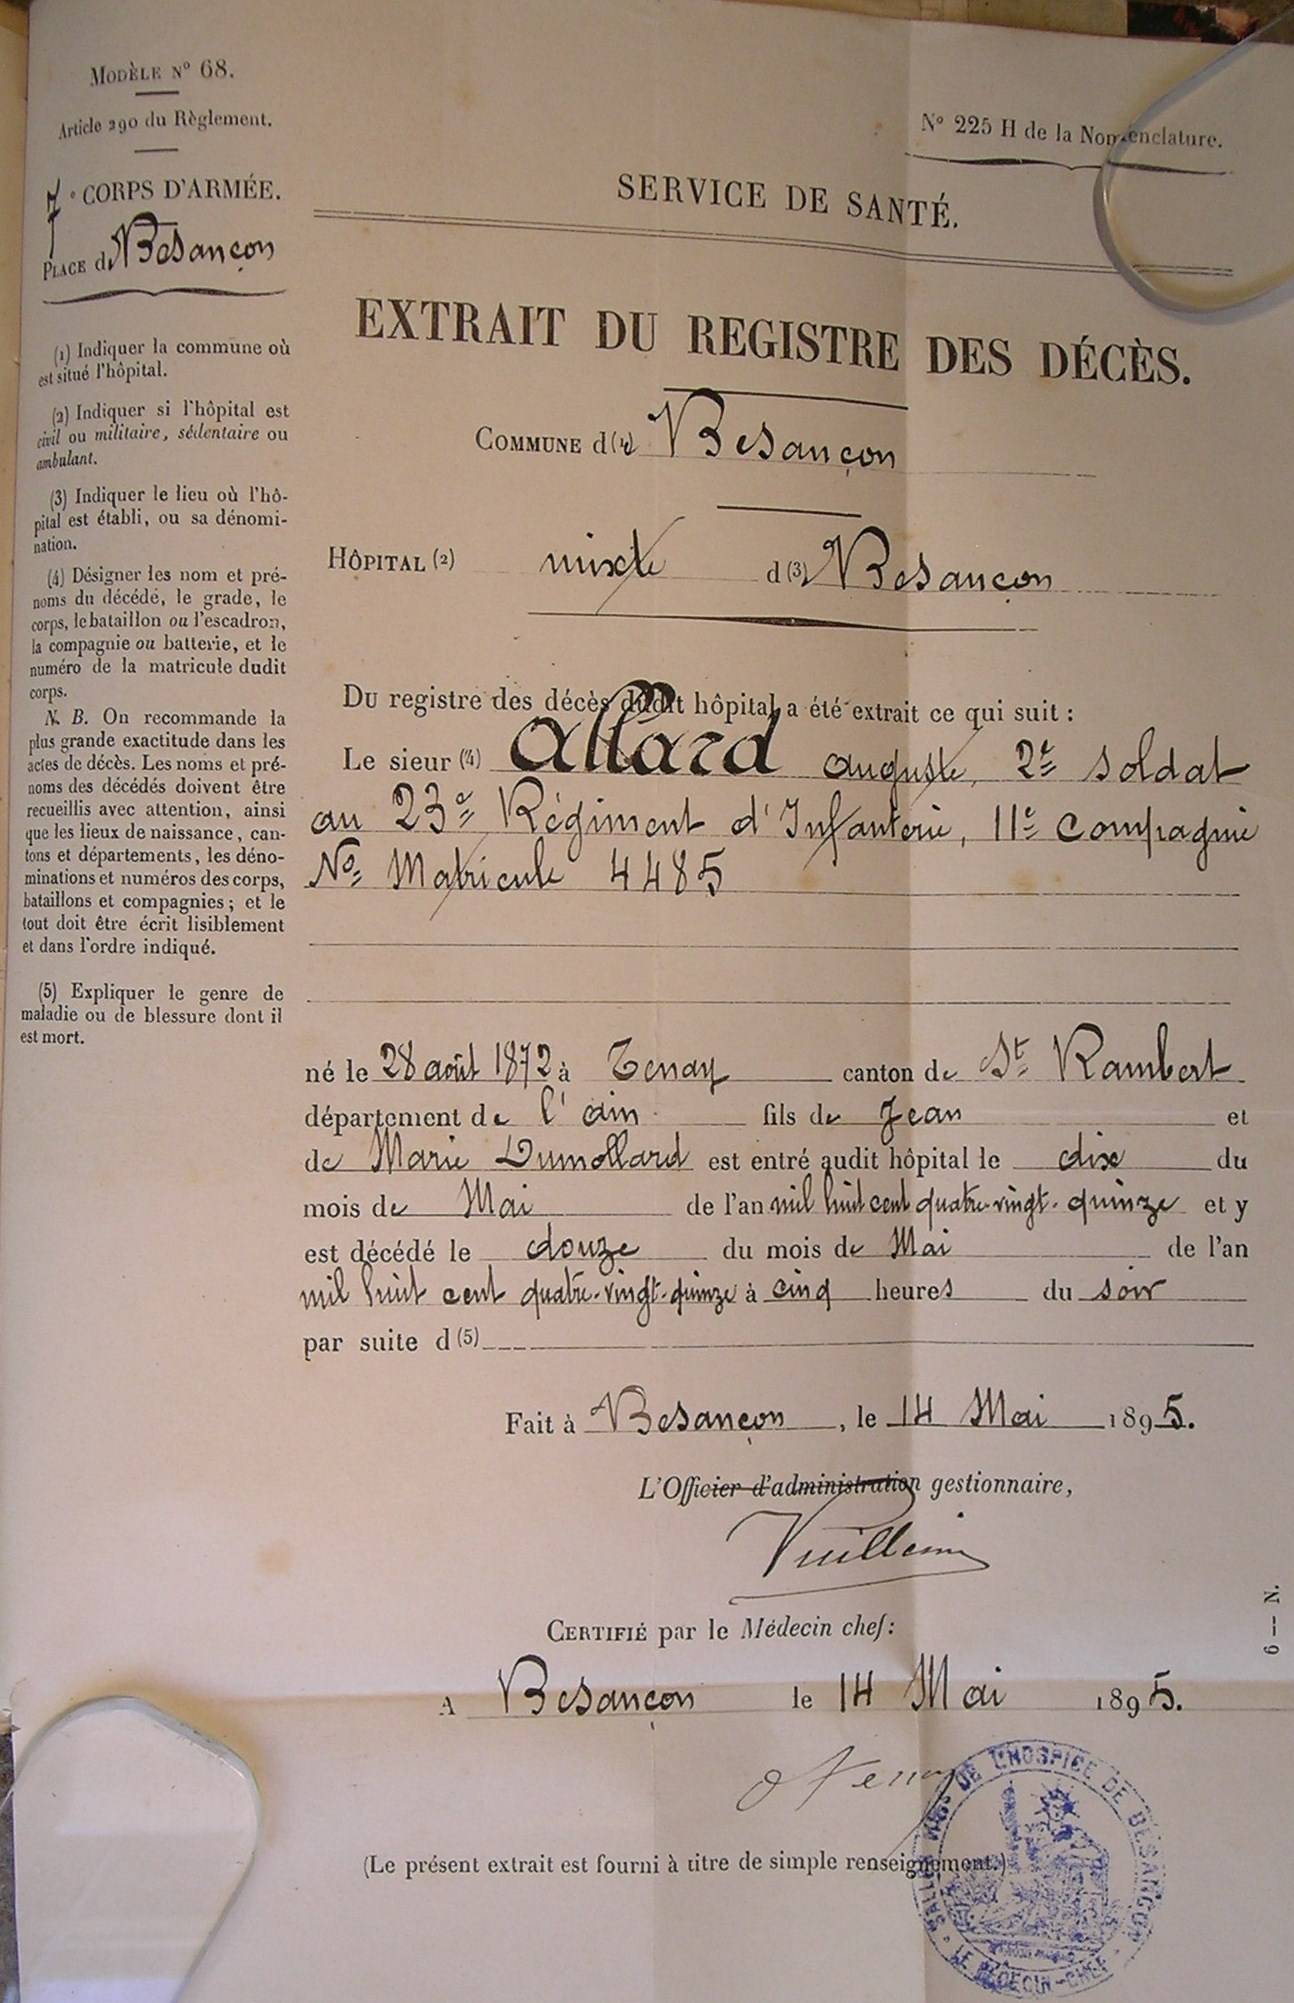 MODÈLE N° 68.
Article 290 du Règlement.
7e CORPS D'ARMÉE.
PLACE de Besançon
(1) Indiquer la commune où
est situé l'hôpital.
(2) Indiquer si l'hôpital est
civil ou militaire, sédentaire ou
ambulant.
(3) Indiquer le lieu où l'hô-
pital est établi, ou sa dénomi-
nation.
(4) Désigner les nom et pré-
noms du décédé, le grade, le
corps, le bataillon ou l'escadron,
la compagnie ou batterie, et le
numéro de la matricule dudit
corps.
N. B. On recommande la
plus grande exactitude dans les
actes de décès. Les noms et pré-
noms des décédés doivent être
recueillis avec attention, ainsi
que les lieux de naissance, can-
tons et départements, les déno-
minations et numéros des corps,
bataillons et compagnies; et le
tout doit être écrit lisiblement
et dans l'ordre indiqué.
(5) Expliquer le genre de
maladie ou de blessure dont il
est mort.
N° 225 H de la Nomenclature.
SERVICE DE SANTÉ.
EXTRAIT DU REGISTRE DES DÉCÈS.
COMMUNE d(1) Besançon
HÔPITAL (2) mixte d(3) Besançon
Du registre des décès dudit hôpital a été extrait ce qui suit :
Le sieur (4) Allard auguste, 2e soldat
au 23e Régiment d'Infanterie, 11e Compagnie
No Matricule 4485
né le 28 août 1872 à Tenay canton de St Rambert
département de l'ain fils de Jean et
de Marie Dumollard est entré audit hôpital le dix du
mois de Mai de l'an mil huit cent quatre-vingt-quinze et y
est décédé le douze du mois de Mai de l'an
mil huit cent quatre-vingt-quinze à cinq heures du soir
par suite d(5)
Fait à Besançon, le 14 Mai 1895.
L'Officier d'administration gestionnaire,
Vuillemin
CERTIFIÉ par le Médecin chef:
A Besançon le 14 Mai 1895.
(Le présent extrait est fourni à titre de simple renseignement.)
SALLES MILres DE L'HOSPICE DE BESANÇON
LE MÉDECIN-CHEF
6—N.